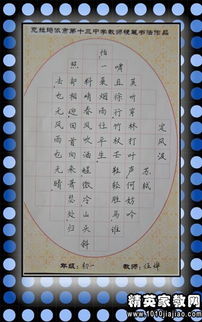 克拉玛依市第十三中学教师硬笔书法作品
定风波
苏轼
莫听穿林打叶声何妨吟
啸且徐行竹杖芒鞋轻胜马谁
怕一蓑烟雨任平生
料峭春风吹酒醒微冷山头斜
照却相迎回首向来萧瑟处归
去也无风雨也无晴
年级:初一 教师:任
精英家教网
www.1010jiajiao.com